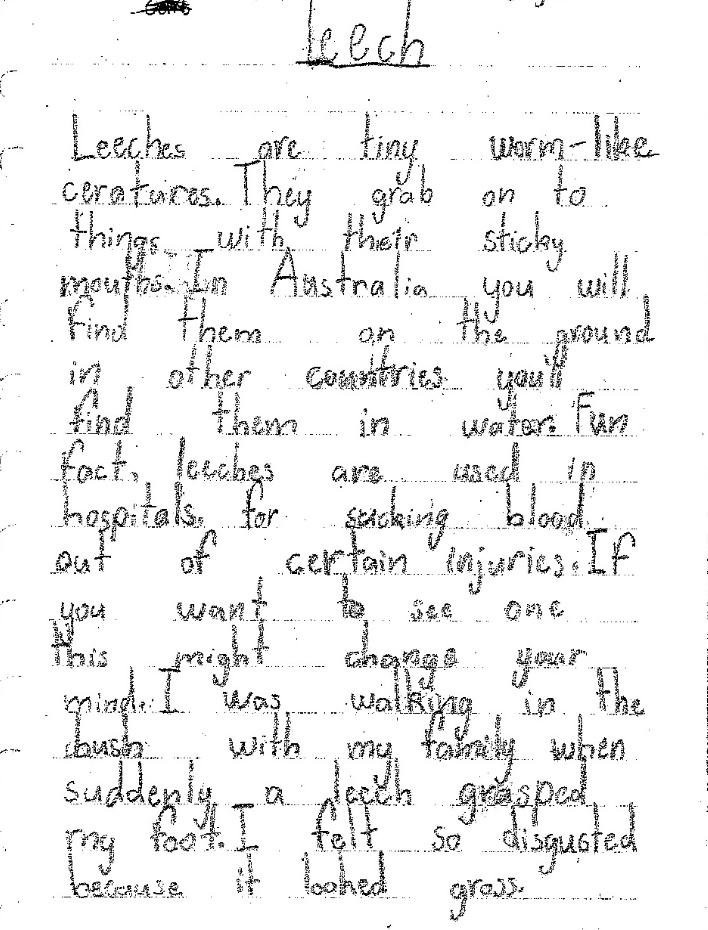 Leech
Leeches are tiny worm-like
ceratures. They grab on to
things with their sticky
mouths. In Australia you will
find them on the ground
in other countries you'll
find them in water. Fun
fact, leeches are used in
hospitals, for sucking blood
out of certain injuries. If
you want to see one
this might change your
mind. I was walking in the
bush with my family when
suddenly a leech grasped
my foot. I felt so disgusted
because it looked gross.